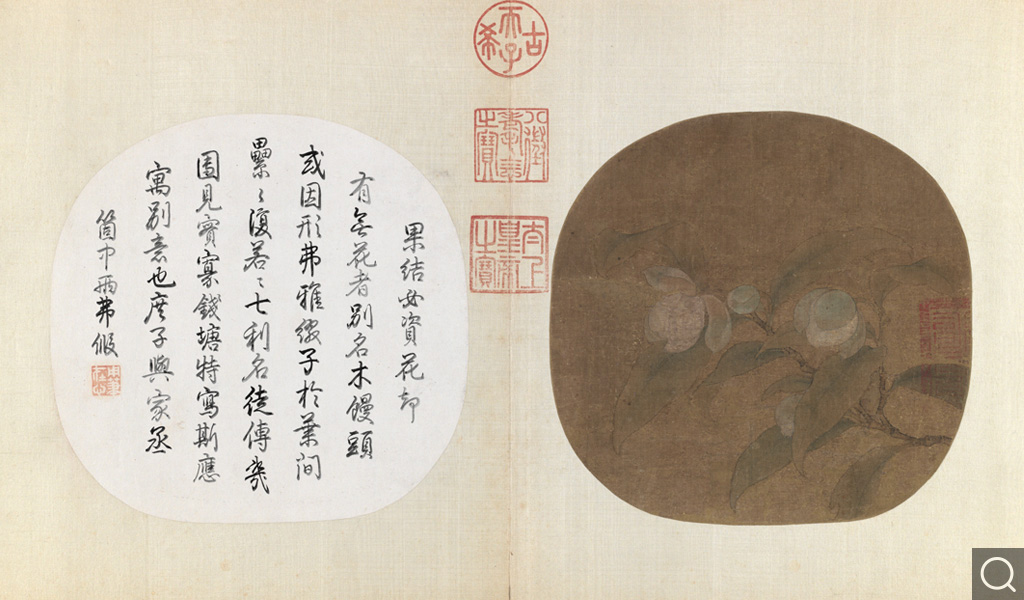 古希天子
八徵耄念之寶
太上皇帝之寶
果結必資花却
有無花者別名木饅頭
或因形弗雅綴子於葉間
纍〻復若〻七利名徒傳幾
圖見實寡錢塘特寫斯應
寓別意也庶子與家丞
箇中兩弗假